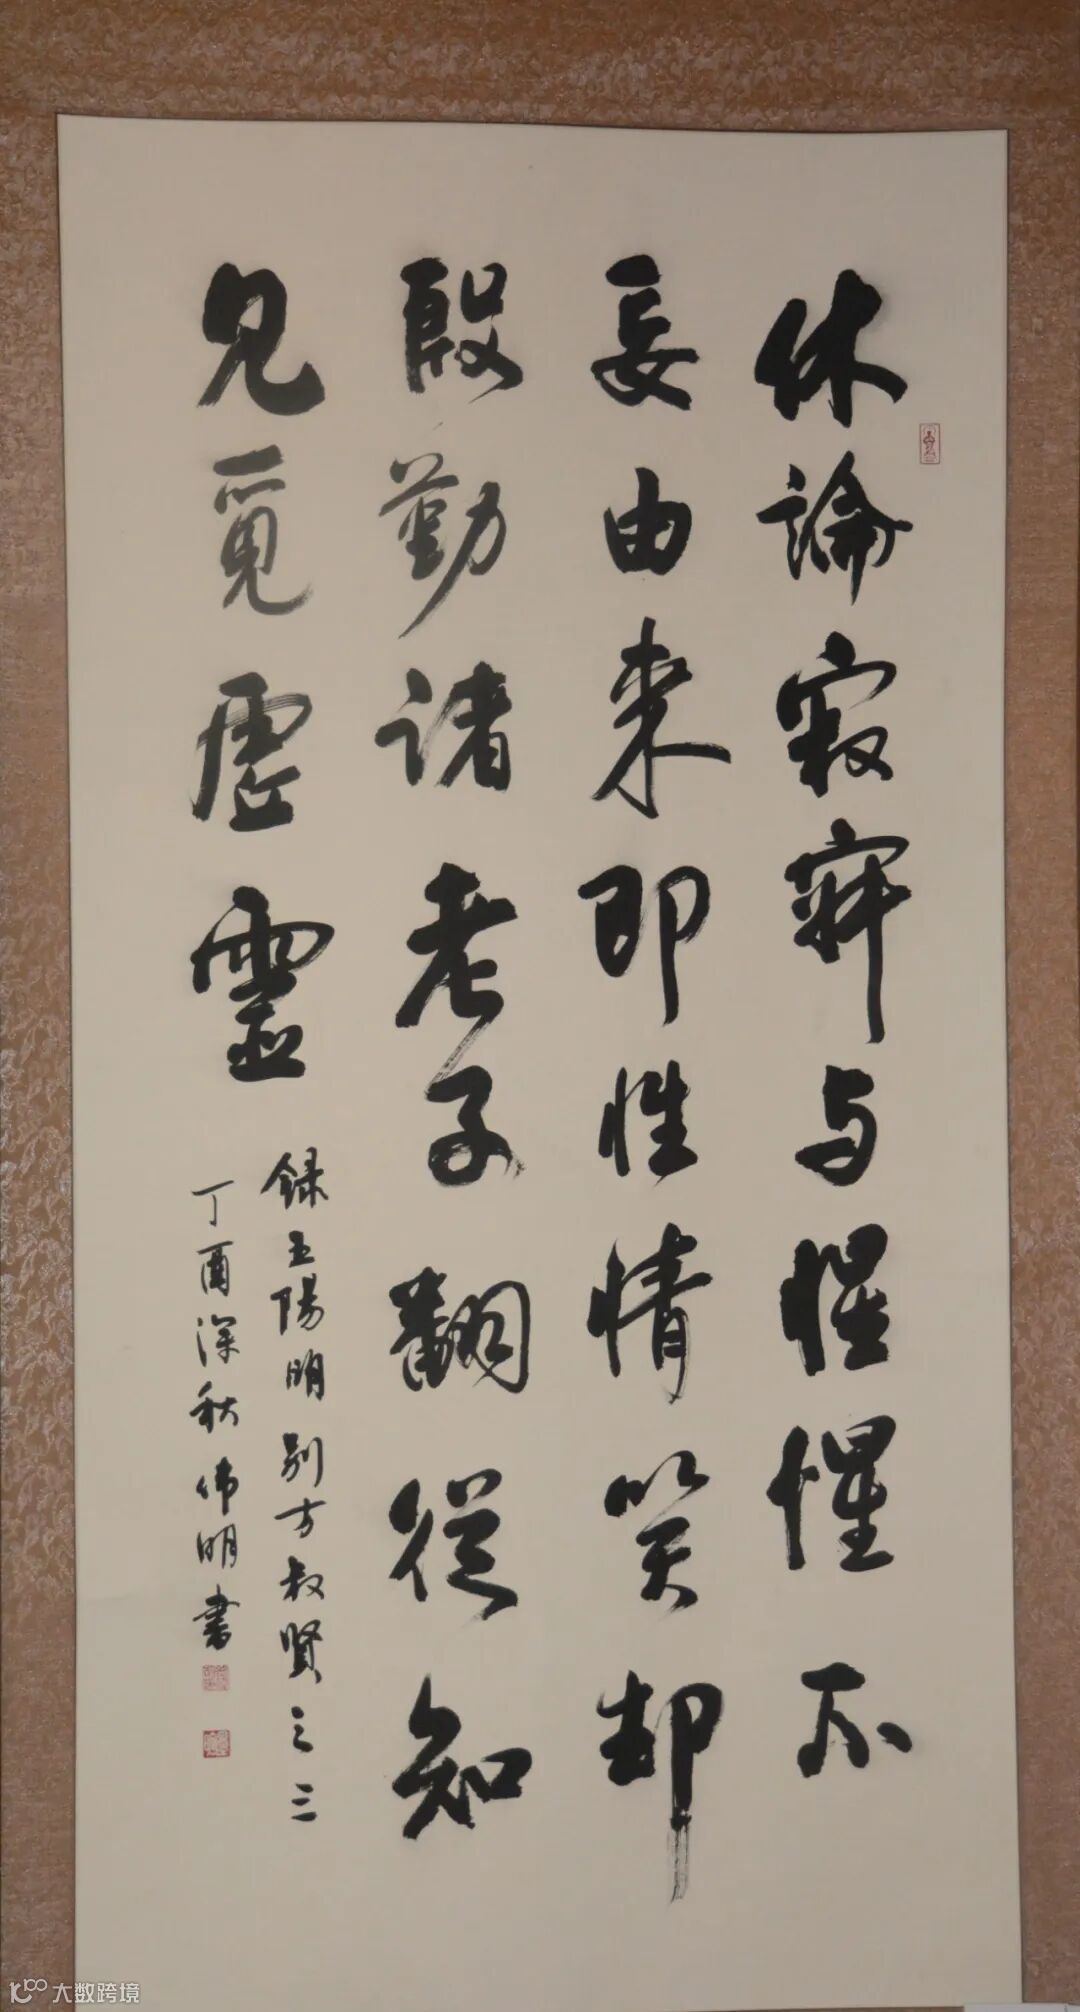 休論寂寂与惺惺不
妄由来即性情笑却
殷勤諸老子翻從知
見覓虛靈
録王陽明别方叔賢之三
丁酉深秋伟明書
大数跨境